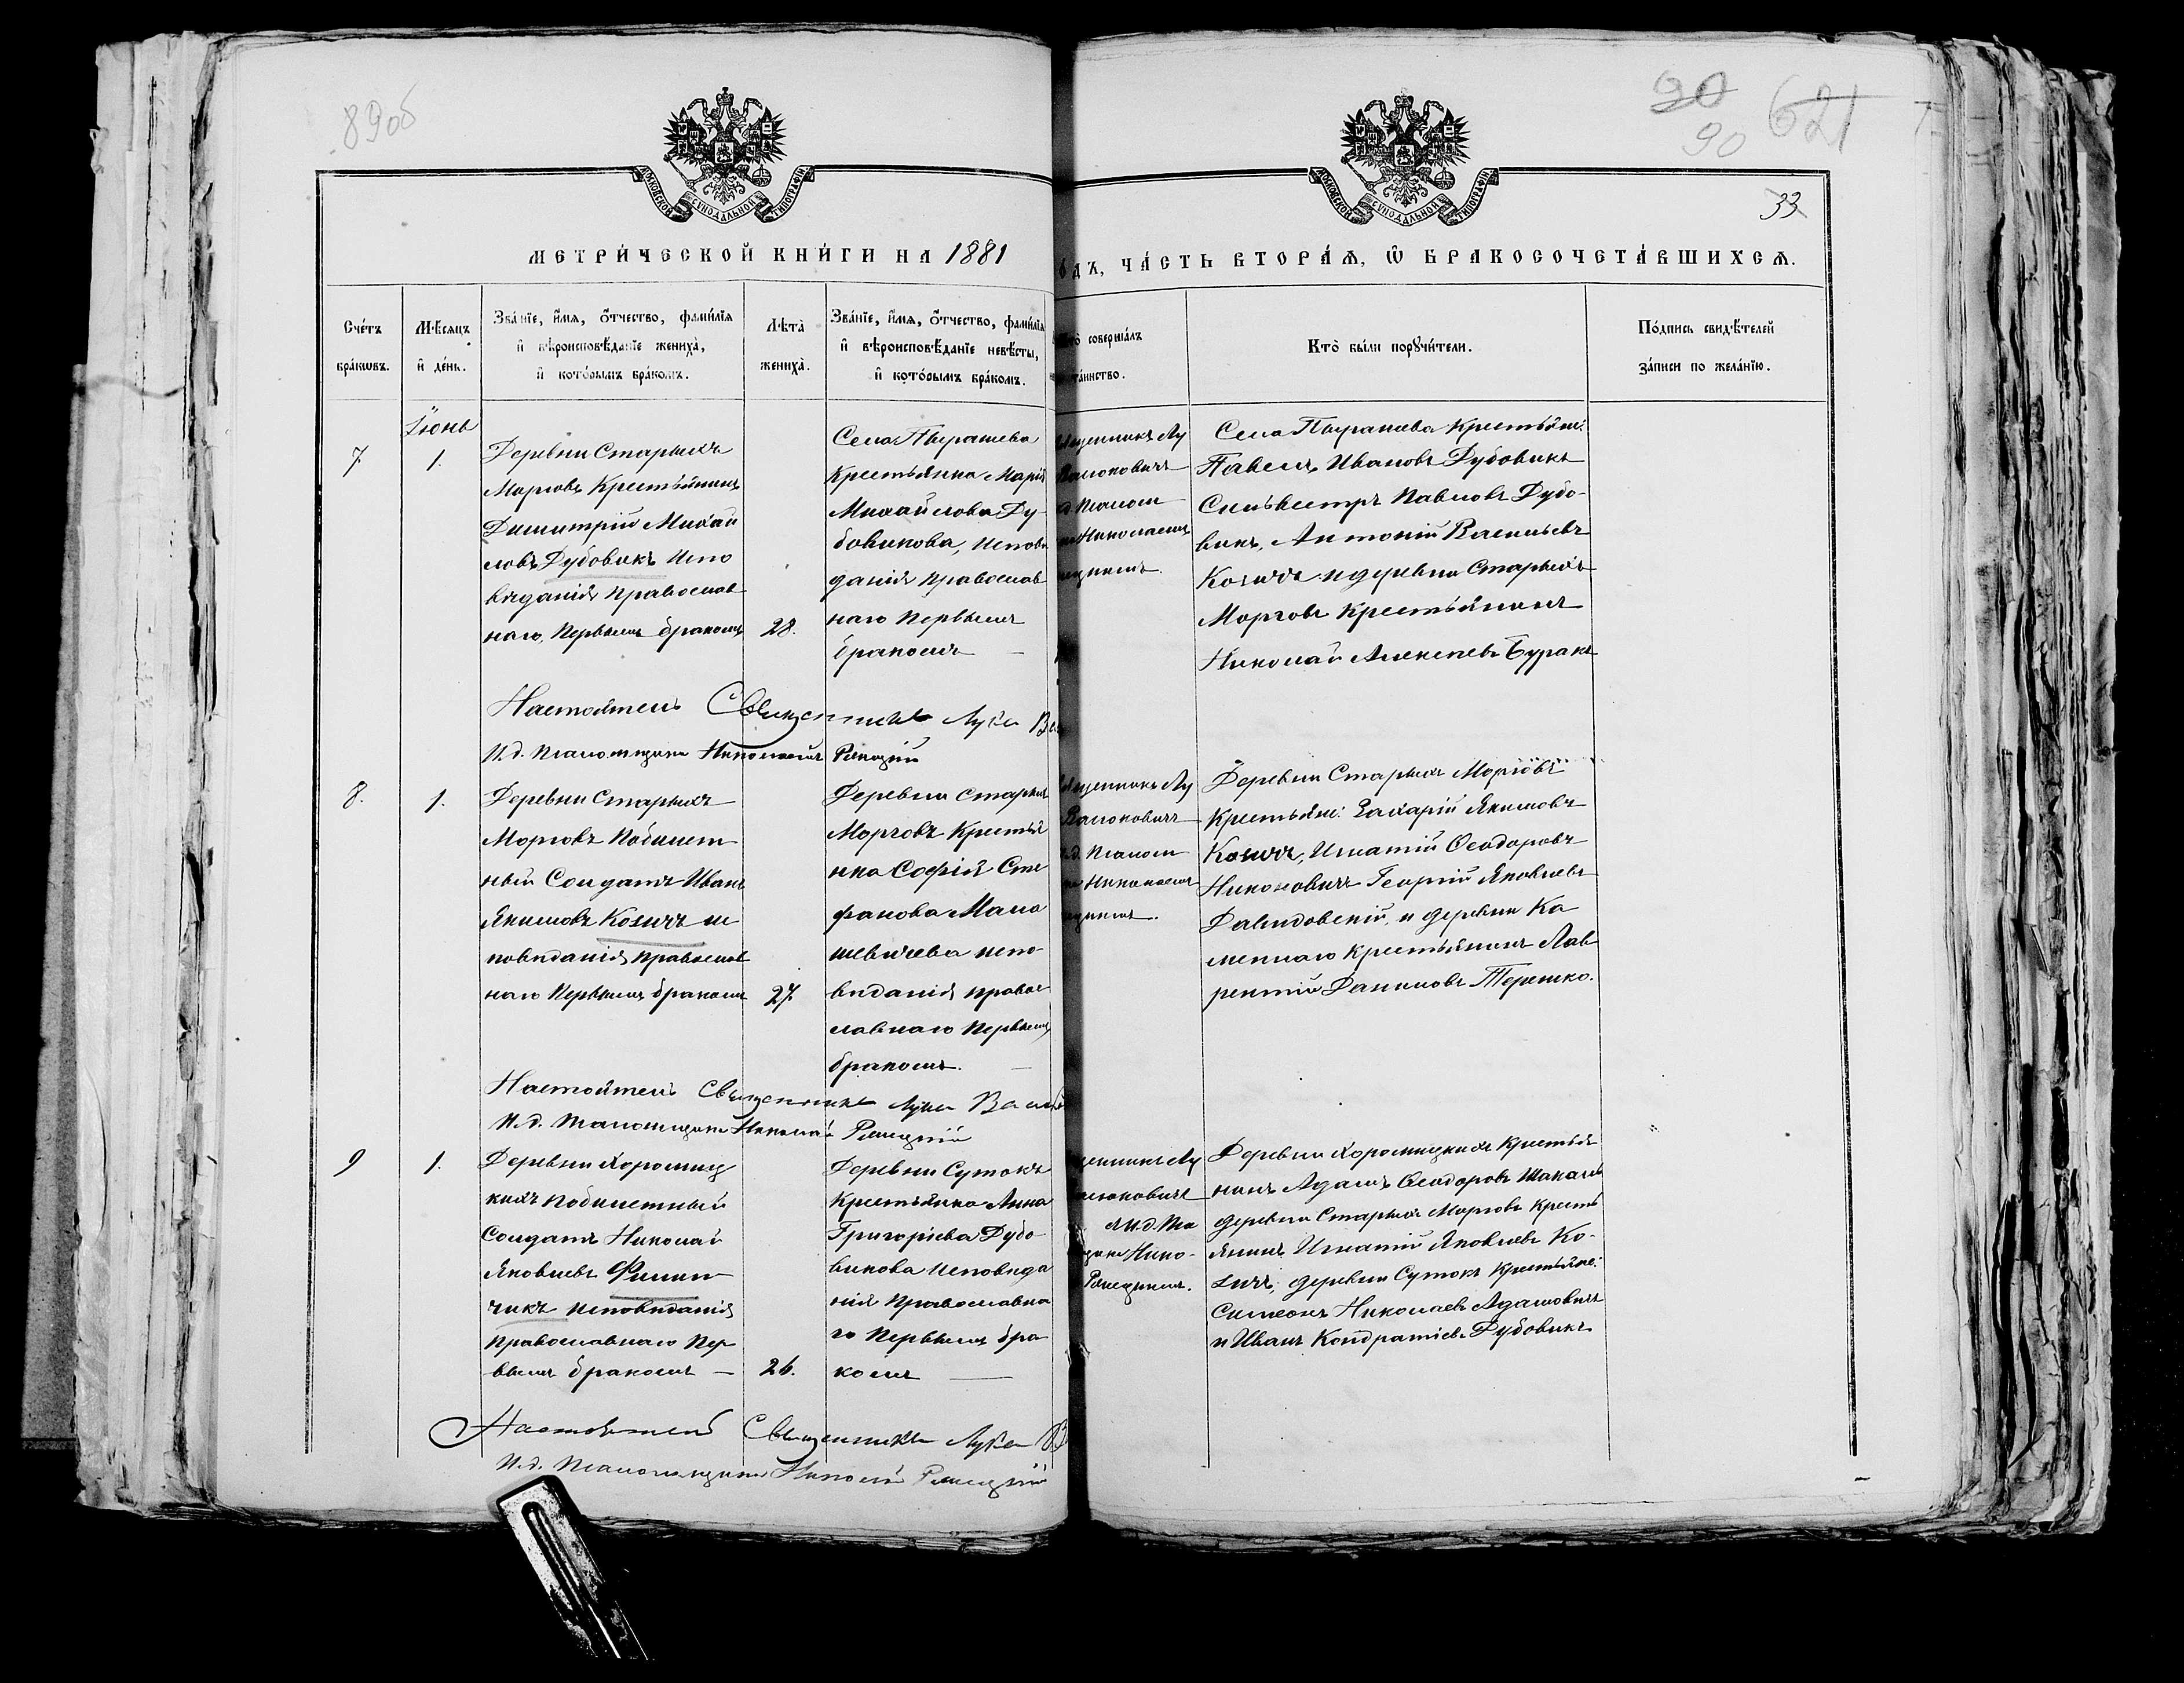 89об
20
90
621
33
МОСКОВСКОЙ СУНОДАЛЬНОЙ ТИПОГРАФІИ
МОСКОВСКОЙ СУНОДАЛЬНОЙ ТИПОГРАФІИ
МЕТРИ́ЧЕСКОЙ КНИ́ГИ НА 1881
ОДЪ, ЧА́СТЬ ВТОРА́Ѧ, Ѿ БРАКОСОЧЕТА́ВШИХСѦ.
Сче́тъ бра́кѡвъ.
Мѣ́сяцъ и҆ де́нь.
Зва́нїе, и҆́мѧ, ѻ҆́тчество, фами́лїѧ и҆ вѣроисповѣ́данїе жениха̀, и҆ кото́рымъ бра́комъ.
Лѣ́та жениха̀.
Зва́нїе, и҆́мѧ, ѻ҆́тчество, фами́лїѧ и҆ вѣроисповѣ́данїе невѣ́сты, и҆ кото́рымъ бра́комъ.
Кто̀ соверша́лъ таинство.
Кто̀ бы́ли порꙋчи́тели.
По́дпись свидѣ́телей за́писи по жела́нїю.
Іюнь
7.
1.
Деревни Старыхъ
Морговъ Крестьянинъ
Димитрій Михай
ловъ Дубовикъ испо
вѣданія православ
наго, первымъ бракомъ
28.
Села
Крестьянка Марія
Михайлова Ду-
бовикова, исповѣ
данія православ
наго первымъ
бракомъ —
щенникъ Лу
Николаемъ
Села Крестьяне:
Павелъ Ивановъ Дубовикъ
Сильвестръ Павловъ Дубо-
викъ, Антоній Васильевъ
Козичъ и деревни Старыхъ
Морговъ Крестьянинъ
Николай Алексѣевъ Буракъ
Настоятель Священникъ Лука Ва
И.д. псаломщика Николай
8.
1.
Деревни Старыхъ
Морговъ побилет
ный Солдатъ Иванъ
Якимовъ Козичъ ис
повѣданія православ
наго первымъ бракомъ
27.
Деревни Старыхъ
Морговъ Крестья
нка Софія Сте
фанова Мала
шевичева испо-
вѣданія право
славнаго первымъ
бракомъ. —
щенникъ Лу
д. псалом
Деревни Старыхъ Морговъ
Крестьяне: Захарій Якимовъ
Козичъ, Игнатій Ѳеодоровъ
Никоновичъ Георгій Яковлевъ
Давидовскій, и деревни Ка
меннаго Крестьянинъ Лав
рентій Даниловъ Терешко.
Настоятель Священникъ Лука Васил
И.д. псаломщика Николай
9
1.
Деревни Хоромиц
кихъ побилетный
Солдатъ Николай
Яковлевъ Филип
чикъ исповѣданія
православнаго пер
вымъ бракомъ —
26.
Деревни Сутокъ
Крестьянка Анна
Григоріева Дубо-
викова исповѣда
нія православна
го первымъ бра
комъ —
щенникъ Лу
и.д. пса
щика Нико-
Деревни Хоромицкихъ Крестья
нинъ Адамъ Ѳеодоровъ
деревни Старыхъ Морговъ Кресть
янинъ Игнатій Яковлевъ Ко-
зичъ, деревни Сутокъ Крестьяне:
Симеонъ Николаевъ Адамовичъ
и Иванъ Кондратіевъ Дубовикъ
Настоятель Священникъ Лука В
И.д. псаломщика Николай